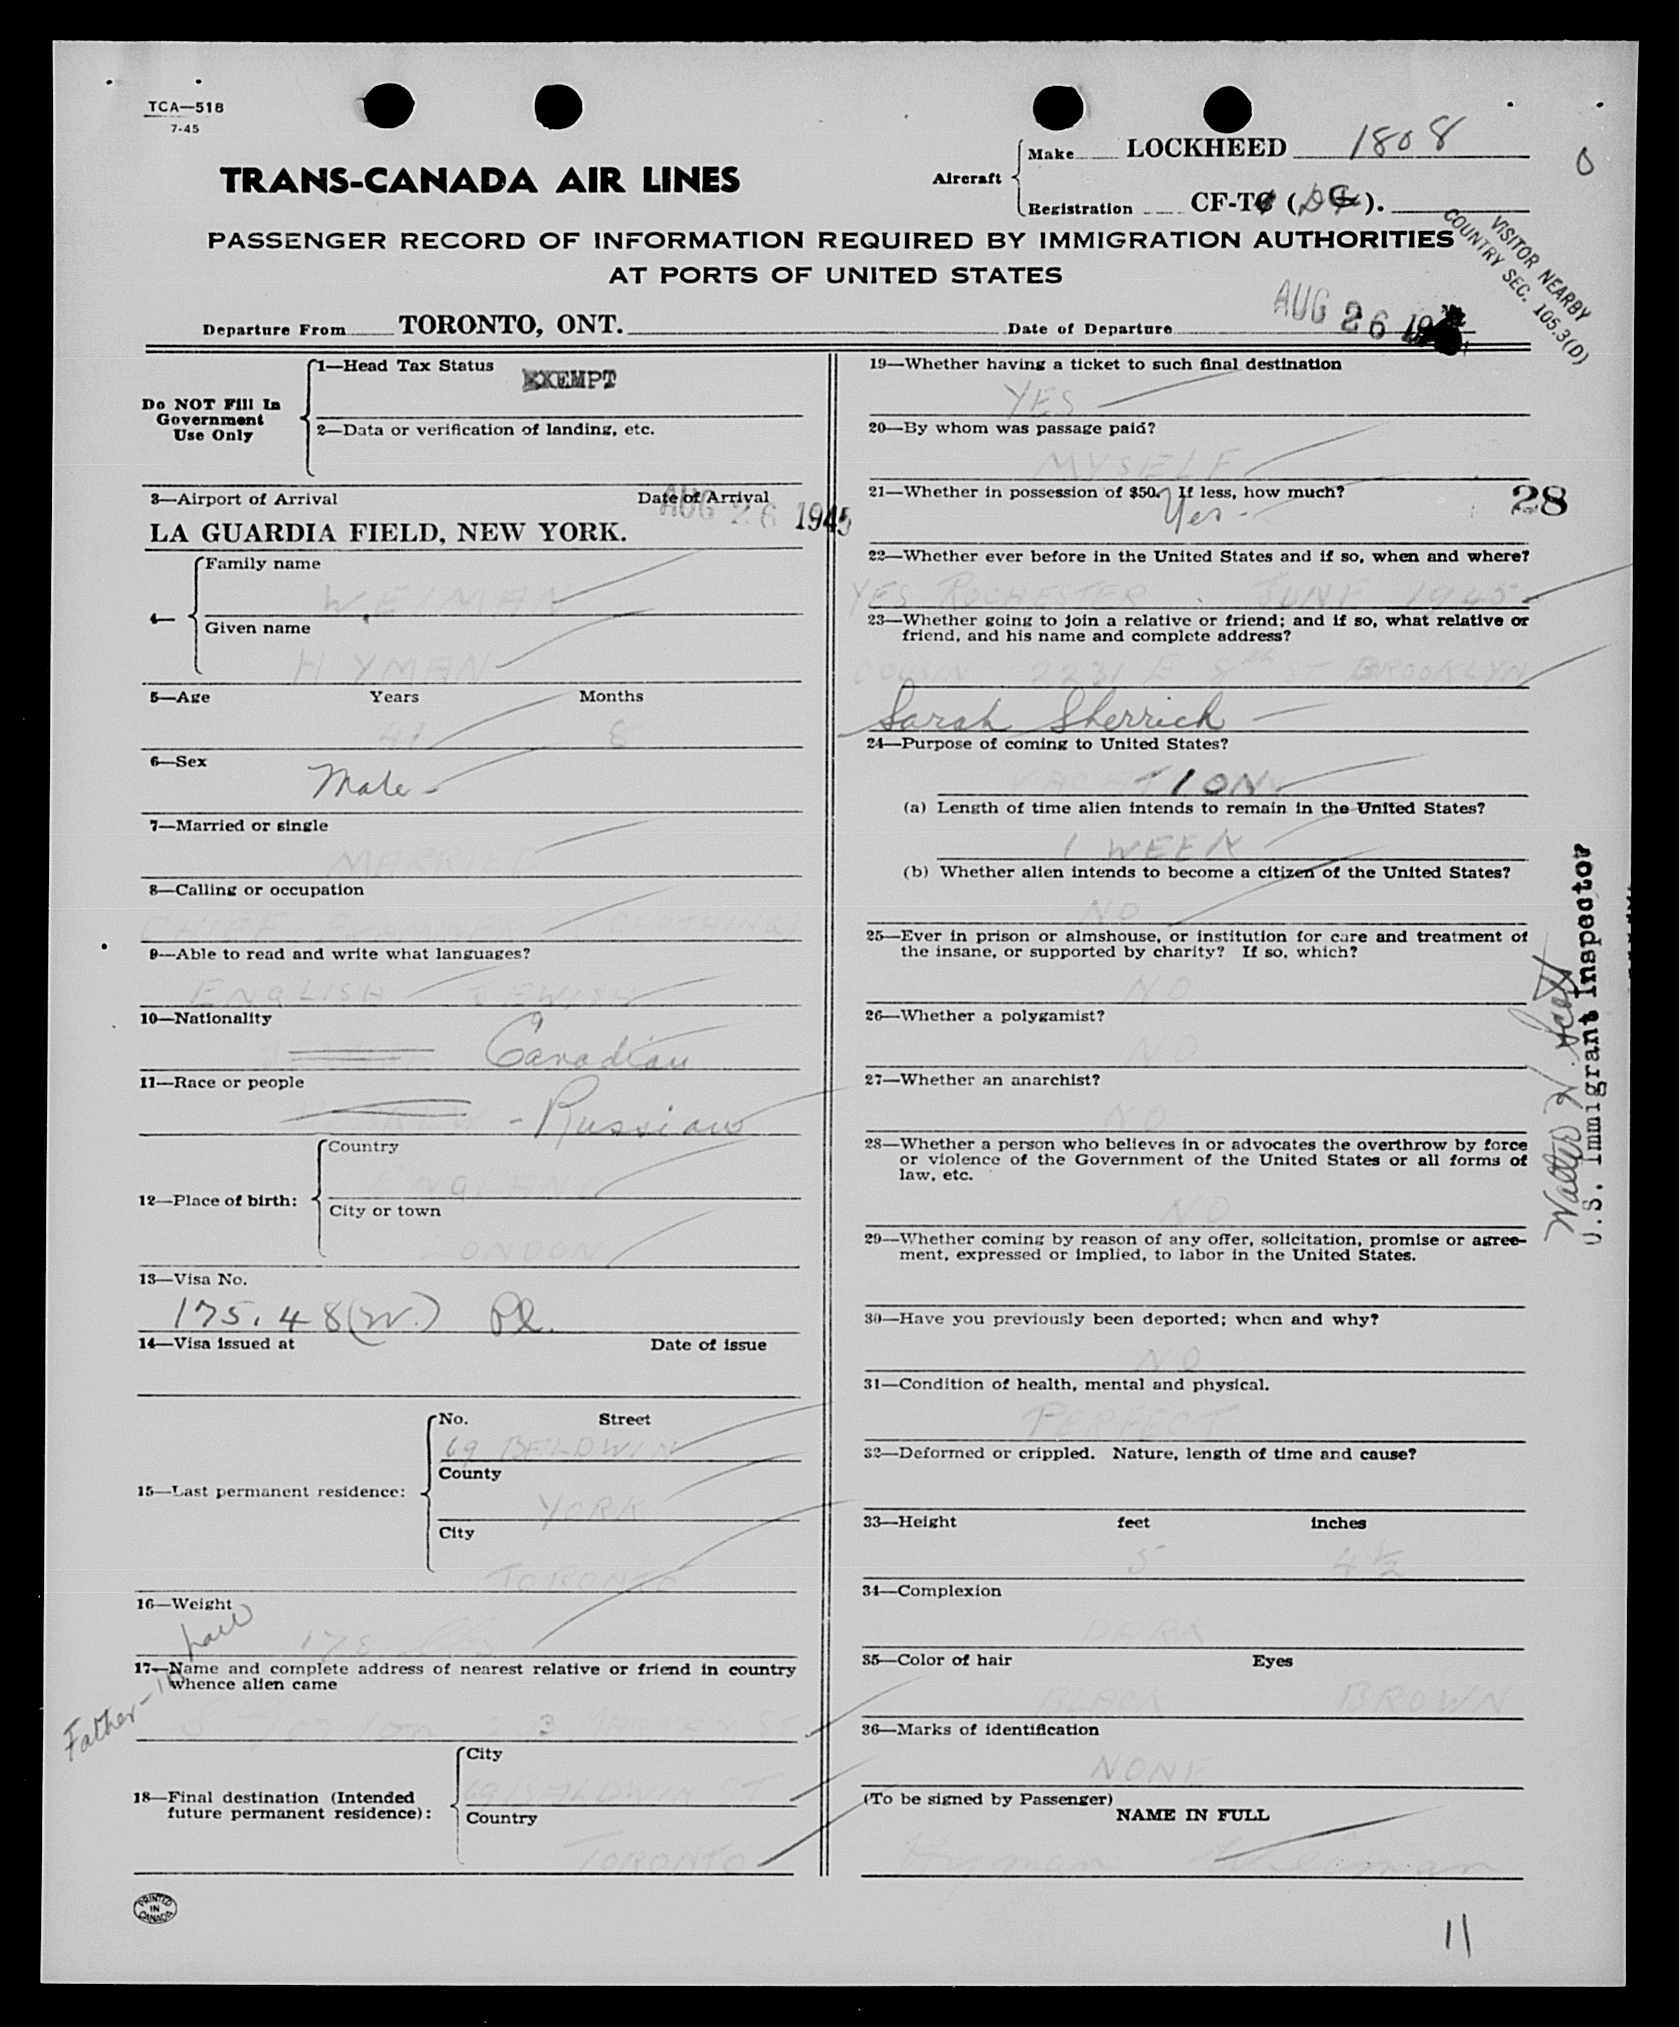 TCA—518
7-45
TRANS-CANADA AIR LINES
Aircraft
Make LOCKHEED 1808
Registration CF-T ( ).
PASSENGER RECORD OF INFORMATION REQUIRED BY IMMIGRATION AUTHORITIES
AT PORTS OF UNITED STATES
VISITOR NEARBY
COUNTRY SEC. 105.3(D)
Departure From TORONTO, ONT. Date of Departure AUG 26
Do NOT Fill In
Government
Use Only
1—Head Tax Status EXEMPT
2—Data or verification of landing, etc.
3—Airport of Arrival Date of Arrival
LA GUARDIA FIELD, NEW YORK. AUG 26 1945
4—
Family name
WEIMAN
Given name
HYMAN
5—Age Years Months
41 8
6—Sex
Male
7—Married or single
MARRIED
8—Calling or occupation
CLOTHING
9—Able to read and write what languages?
ENGLISH JEWISH
10—Nationality
Canadian
11—Race or people
- Russian
12—Place of birth:
Country
ENGLAND
City or town
LONDON
13—Visa No.
175.48(W.) Pl.
14—Visa issued at Date of issue
15—Last permanent residence:
No. Street
69 BELDWIN
County
YORK
City
TORONTO
16—Weight
178
17—Name and complete address of nearest relative or friend in country
whence alien came
Father-in law
18—Final destination (Intended
future permanent residence):
City
69 BALDWIN ST
Country
TORONTO
PRINTED
IN
CANADA
19—Whether having a ticket to such final destination
YES
20—By whom was passage paid?
MYSELF
21—Whether in possession of $50. If less, how much?
Yes. 28
22—Whether ever before in the United States and if so, when and where?
YES ROCHESTER JUNE 1945
23—Whether going to join a relative or friend; and if so, what relative or
friend, and his name and complete address?
COUSIN 2231 E 8th ST BROOKLYN
Sarah Sherrick
24—Purpose of coming to United States?
VACATION
(a) Length of time alien intends to remain in the United States?
1 WEEK
(b) Whether alien intends to become a citizen of the United States?
NO
25—Ever in prison or almshouse, or institution for care and treatment of
the insane, or supported by charity? If so, which?
NO
26—Whether a polygamist?
NO
27—Whether an anarchist?
NO
28—Whether a person who believes in or advocates the overthrow by force
or violence of the Government of the United States or all forms of
law, etc.
NO
29—Whether coming by reason of any offer, solicitation, promise or agree-
ment, expressed or implied, to labor in the United States.
30—Have you previously been deported; when and why?
NO
31—Condition of health, mental and physical.
PERFECT
32—Deformed or crippled. Nature, length of time and cause?
33—Height feet inches
5 4½
34—Complexion
DARK
35—Color of hair Eyes
BLACK BROWN
36—Marks of identification
NONE
(To be signed by Passenger)
NAME IN FULL
Hyman Weiman
Walter W. Scott
U.S. Immigrant Inspector
11